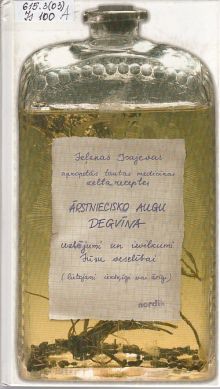 615.3(03)
Is 100 A
Jeļenas Isajevas
apkopotās tautas medicīnas
zelta receptes
ĀRSTNIECISKO AUGU
DEGVĪNA
uzlējumi un izvilkumi
Jūsu veselībai
(lietojami iekšķīgi un ārīgi)
nordik